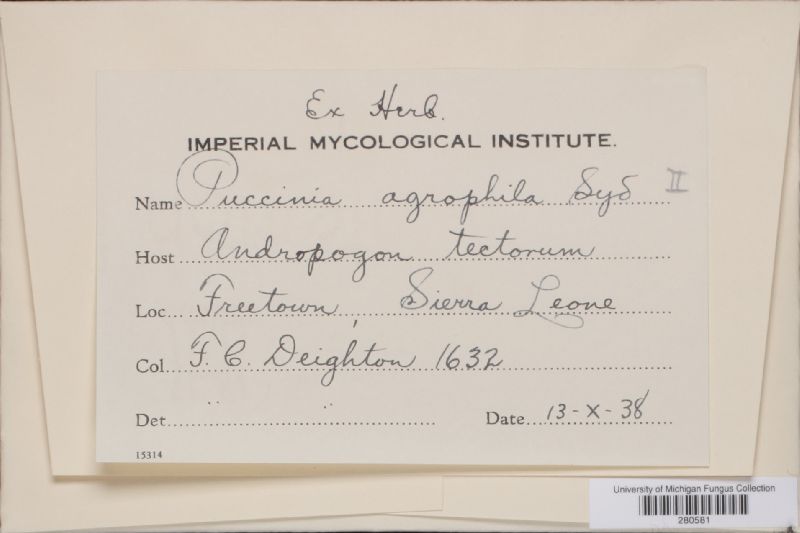 Ex Herb.
IMPERIAL MYCOLOGICAL INSTITUTE.
Name Puccinia agrophila Syd II
Host Andropogon tectorum
Loc. Freetown, Sierra Leone
Col. F. C. Deighton 1632
Det. " "
Date 13-X-38
15314
University of Michigan Fungus Collection
280581